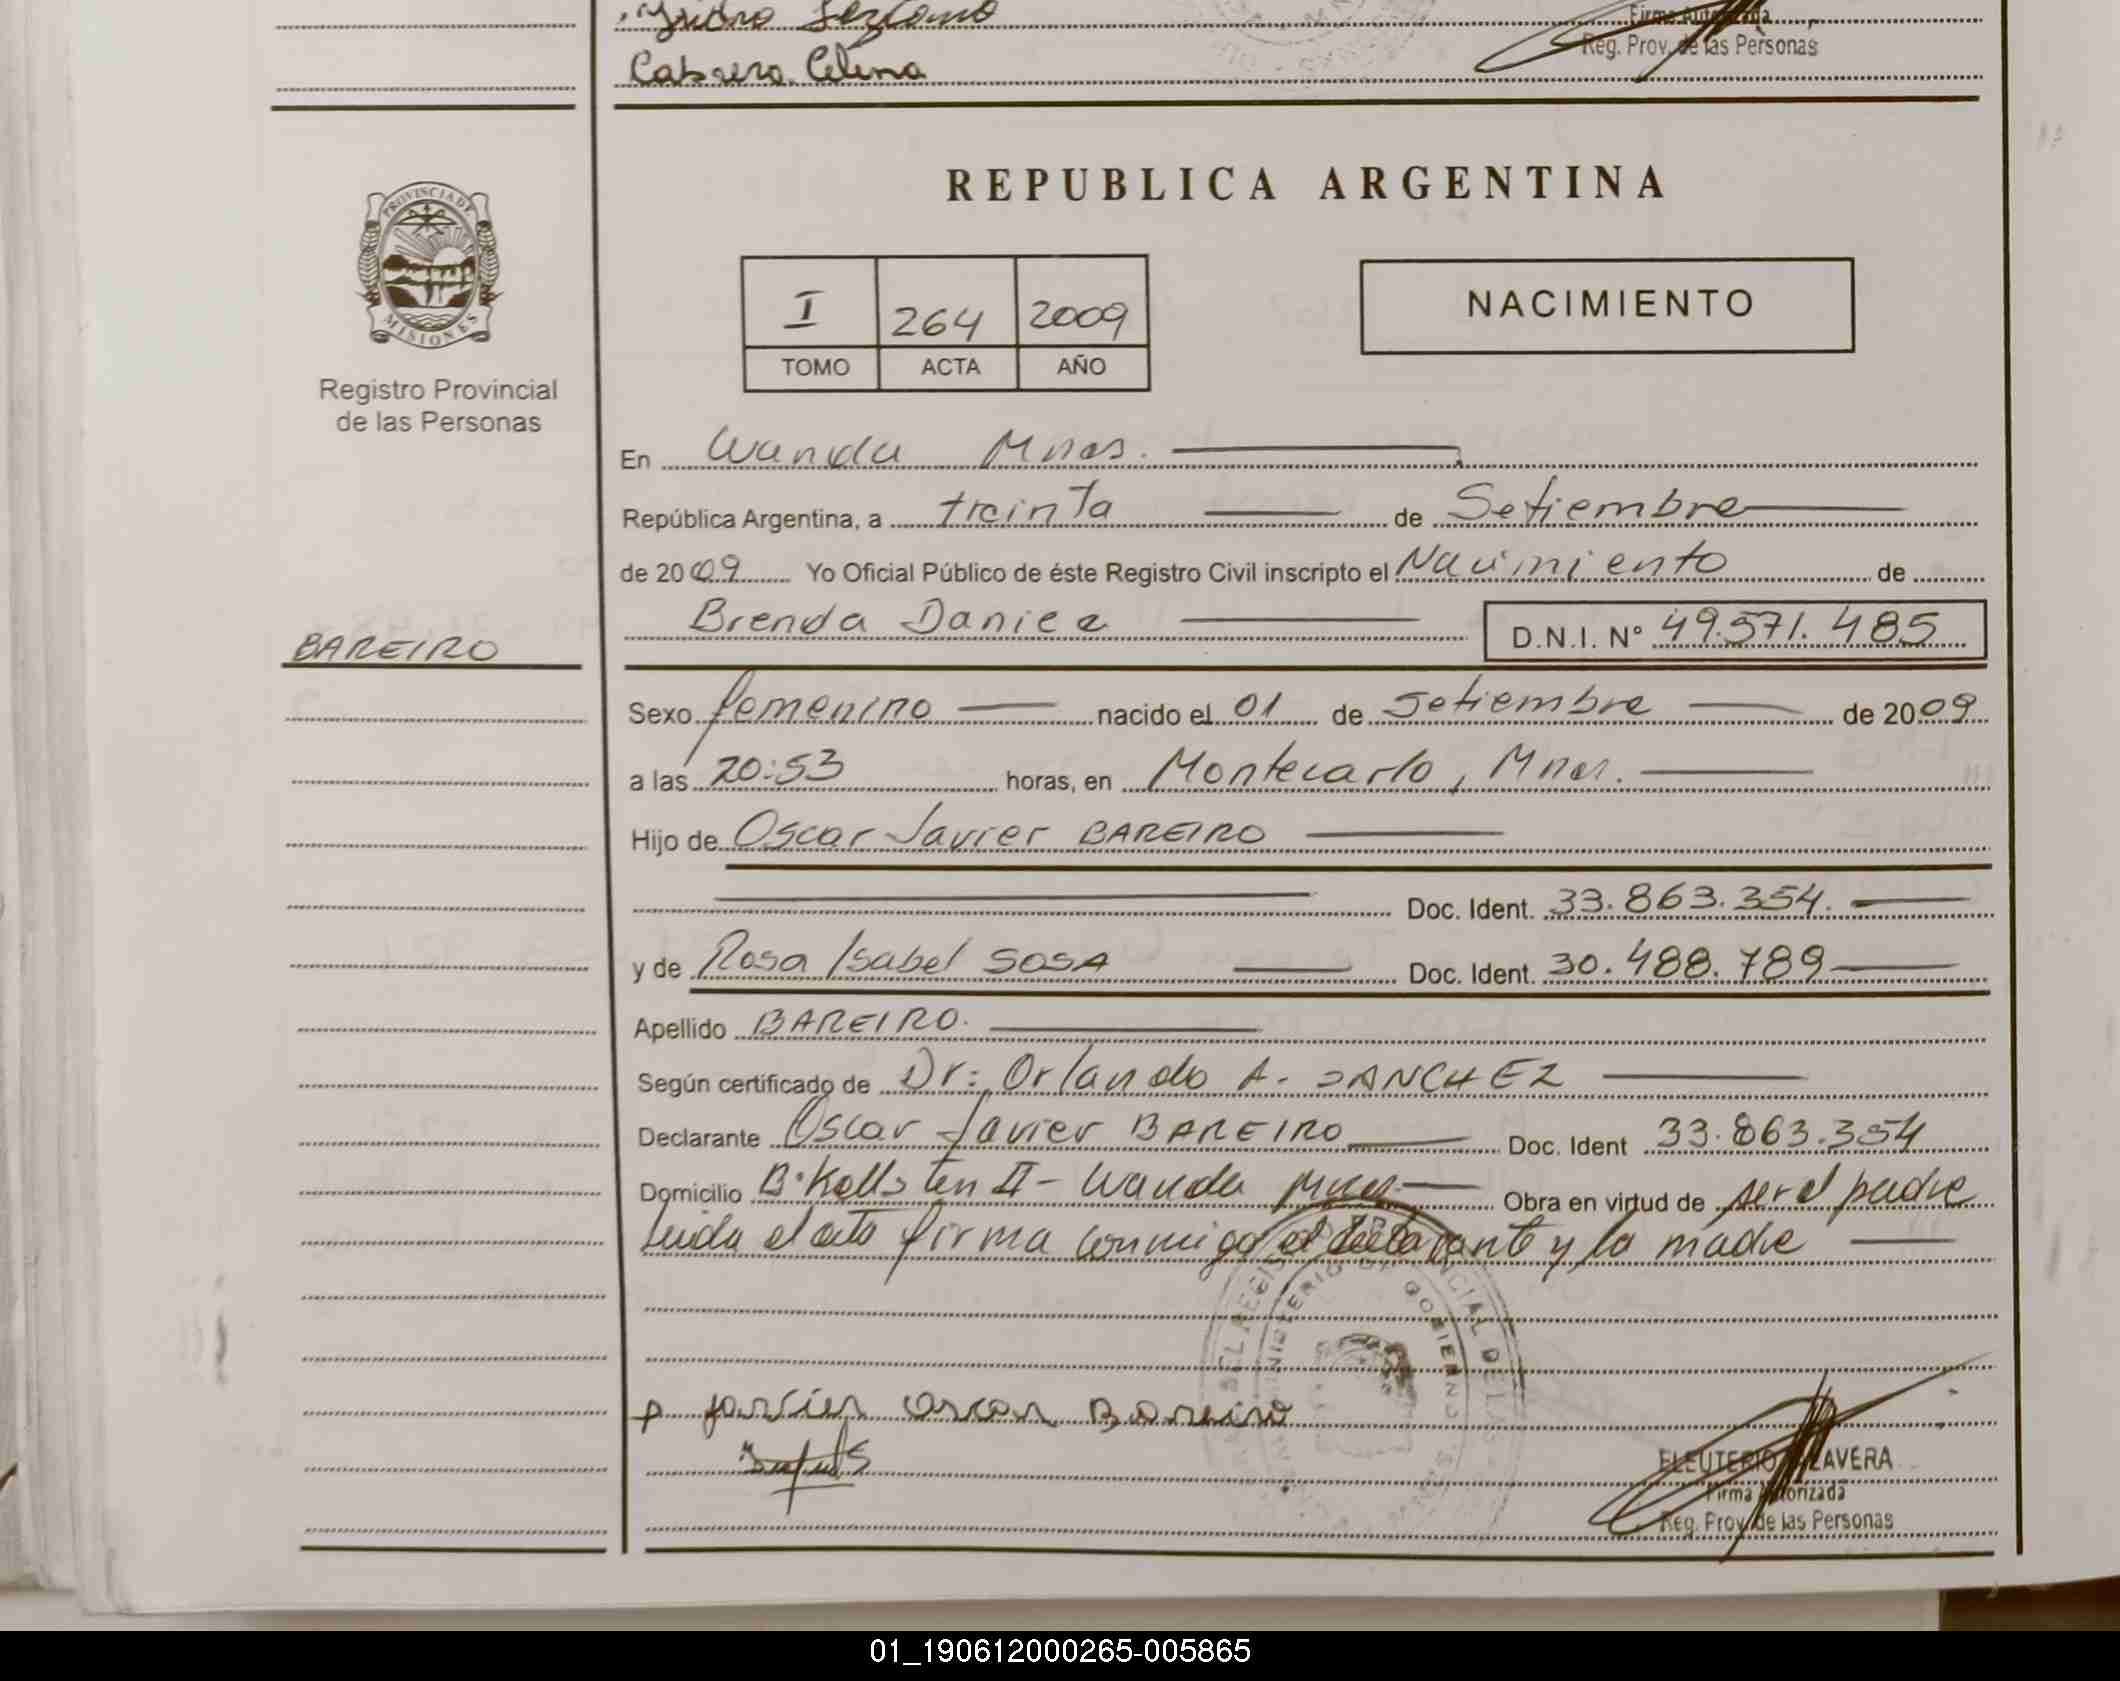 Cabrera Celina
Firma Autorizada
Reg. Prov. de las Personas
PROVINCIA DE
MISIONES
Registro Provincial
de las Personas
BAREIRO
REPUBLICA ARGENTINA
I 264 2009
TOMO ACTA AÑO
NACIMIENTO
En Wanda Mnes.
República Argentina, a treinta de Setiembre
de 2009 Yo Oficial Público de éste Registro Civil inscripto el Nacimiento de
Brenda D.N.I. Nº 49.571.485
Sexo femenino nacido el 01 de Setiembre de 2009
a las 20:53 horas, en Montecarlo, Mnes.
Hijo de Oscar Javier BAREIRO
Doc. Ident. 33.863.354.
y de Rosa Isabel SOSA Doc. Ident. 30.488.789
Apellido BAREIRO.
Según certificado de Dr: Orlando A. SANCHEZ
Declarante Oscar Javier BAREIRO Doc. Ident 33.863.354
Domicilio II - Wanda Mnes Obra en virtud de ser el padre
Leida el acta firma conmigo el declarante y la madre
Javier Oscar Bareiro
MINISTERIO DE GOBIERNO
Firma Autorizada
Reg. Prov. de las Personas
01_190612000265-005865